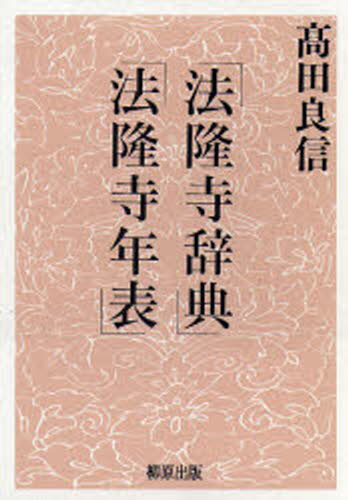 髙田良信
「法隆寺辞典」
「法隆寺年表」
柳原出版